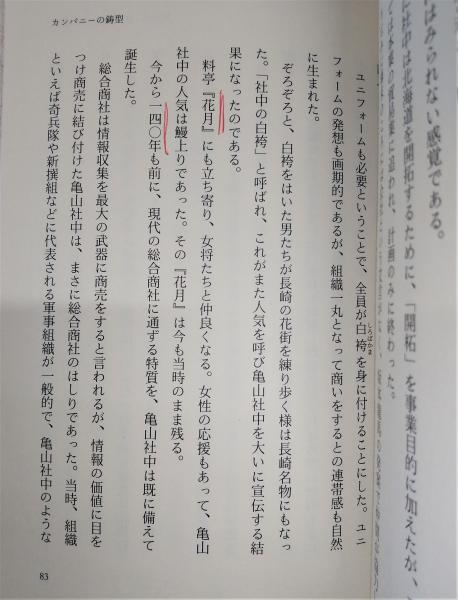 はみられない感覚である。
社中は北海道を開拓するために、「開拓」を事業目的に加えたが、
計画のみに終わった。
カンパニーの鋳型
ユニフォームも必要ということで、全員が白袴を身に付けることにした。ユニ
しろばかま
フォームの発想も画期的であるが、組織一丸となって商いをするとの連帯感も自然
に生まれた。
ぞろぞろと、白袴をはいた男たちが長崎の花街を練り歩く様は長崎名物にもなっ
た。「社中の白袴」と呼ばれ、これがまた人気を呼び亀山社中を大いに宣伝する結
果になったのである。
料亭『花月』にも立ち寄り、女将たちと仲良くなる。女性の応援もあって、亀山
社中の人気は鰻上りであった。その『花月』は今も当時のまま残る。
今から一四〇年も前に、現代の総合商社に通ずる特質を、亀山社中は既に備えて
誕生した。
総合商社は情報収集を最大の武器に商売をすると言われるが、情報の価値に目を
つけ商売に結び付けた亀山社中は、まさに総合商社のはしりであった。当時、組織
といえば奇兵隊や新撰組などに代表される軍事組織が一般的で、亀山社中のような
83